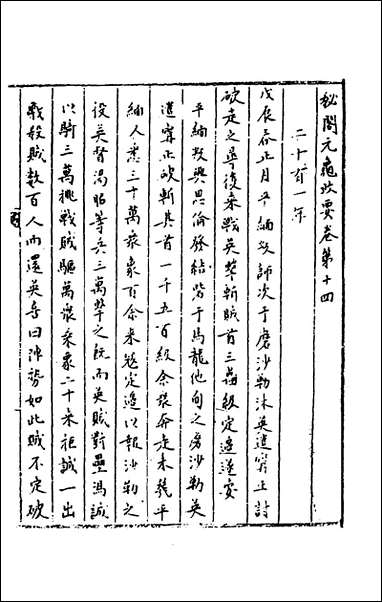 秘閣元龜政要卷第十四
二十有一年
戊辰春正月平緬叛師次于摩沙勒沐英遣甯正討
破走之尋復來戰英等斬賊首三千級定邊遂安
平緬叛與思倫發結砦于馬龍他甸之摩沙勒英
遣甯正破斬其首一千五百級余衆奔走未幾平
緬人悉三十萬衆象百余來寇定邊以報沙勒之
役英督馮昭等兵三萬擊之既而英賊對壘馮誠
以騎三萬挑戰賊驅萬衆乘象二十來拒誠一出
戰殺賊數百人而還英喜曰陣勢如此賊不足破